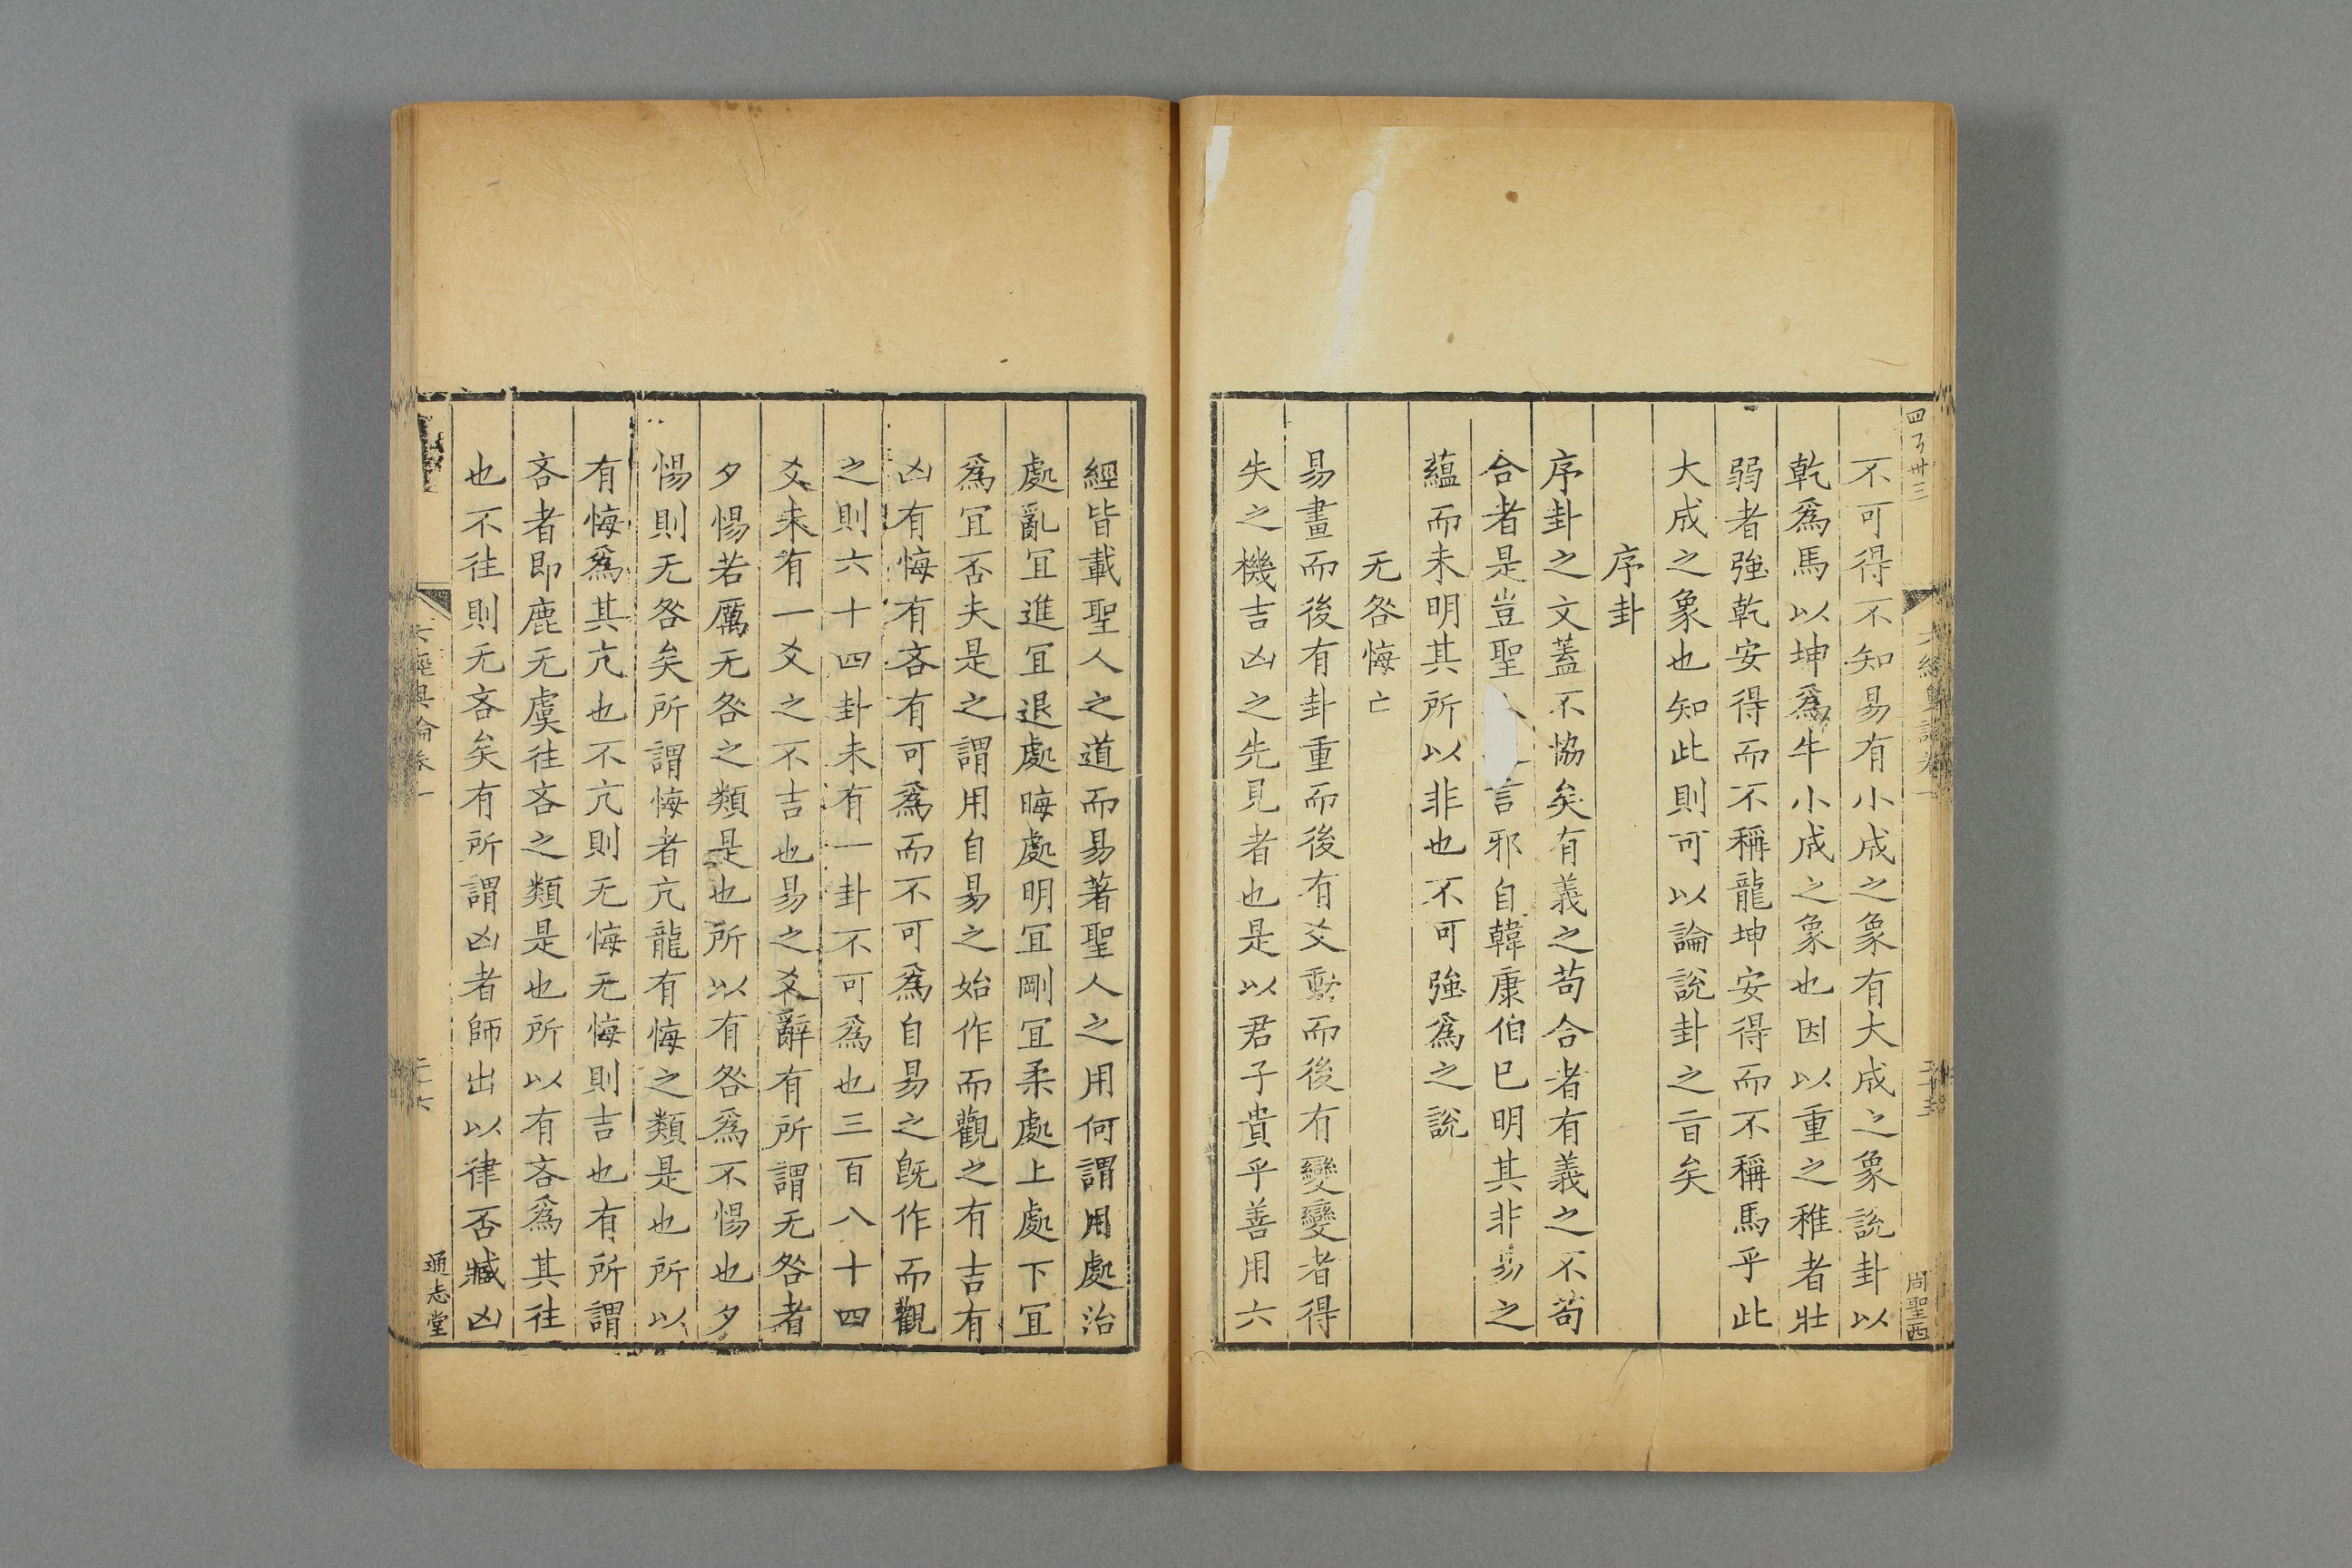 不可得不知易有小成之象有大成之象說卦以
乾爲馬以坤爲牛小成之象也因以重之稚者壯
弱者強乾安得而不稱龍坤安得而不稱馬乎此
大成之象也知此則可以論說卦之㫖矣
序卦
序卦之文蓋不協矣有義之苟合者有義之不苟
合者是豈聖言邪自韓康伯已明其非易之
蘊而未明其所以非也不可強爲之說
无咎悔亡
易畫而後有卦重而後有爻動而後有變變者得
失之機吉凶之先見者也是以君子貴乎善用六
周聖西
經皆載聖人之道而易著聖人之用何謂用處治
處亂冝進冝退處晦處明冝剛冝柔處上處下冝
爲冝否夫是之謂用自易之始作而觀之有吉有
凶有悔有吝有可爲而不可爲自易之旣作而觀
之則六十四卦未有一卦不可爲也三百八十四
爻未有一爻之不吉也易之爻辭有所謂无咎者
夕惕若厲无咎之類是也所以有咎爲不惕也夕
惕則无咎矣所謂悔者亢龍有悔之類是也所以
有悔爲其亢也不亢則无悔无悔則吉也有所謂
吝者即鹿无虞往吝之類是也所以有吝爲其往
也不往則无吝矣有所謂凶者師出以律否臧凶
通志堂